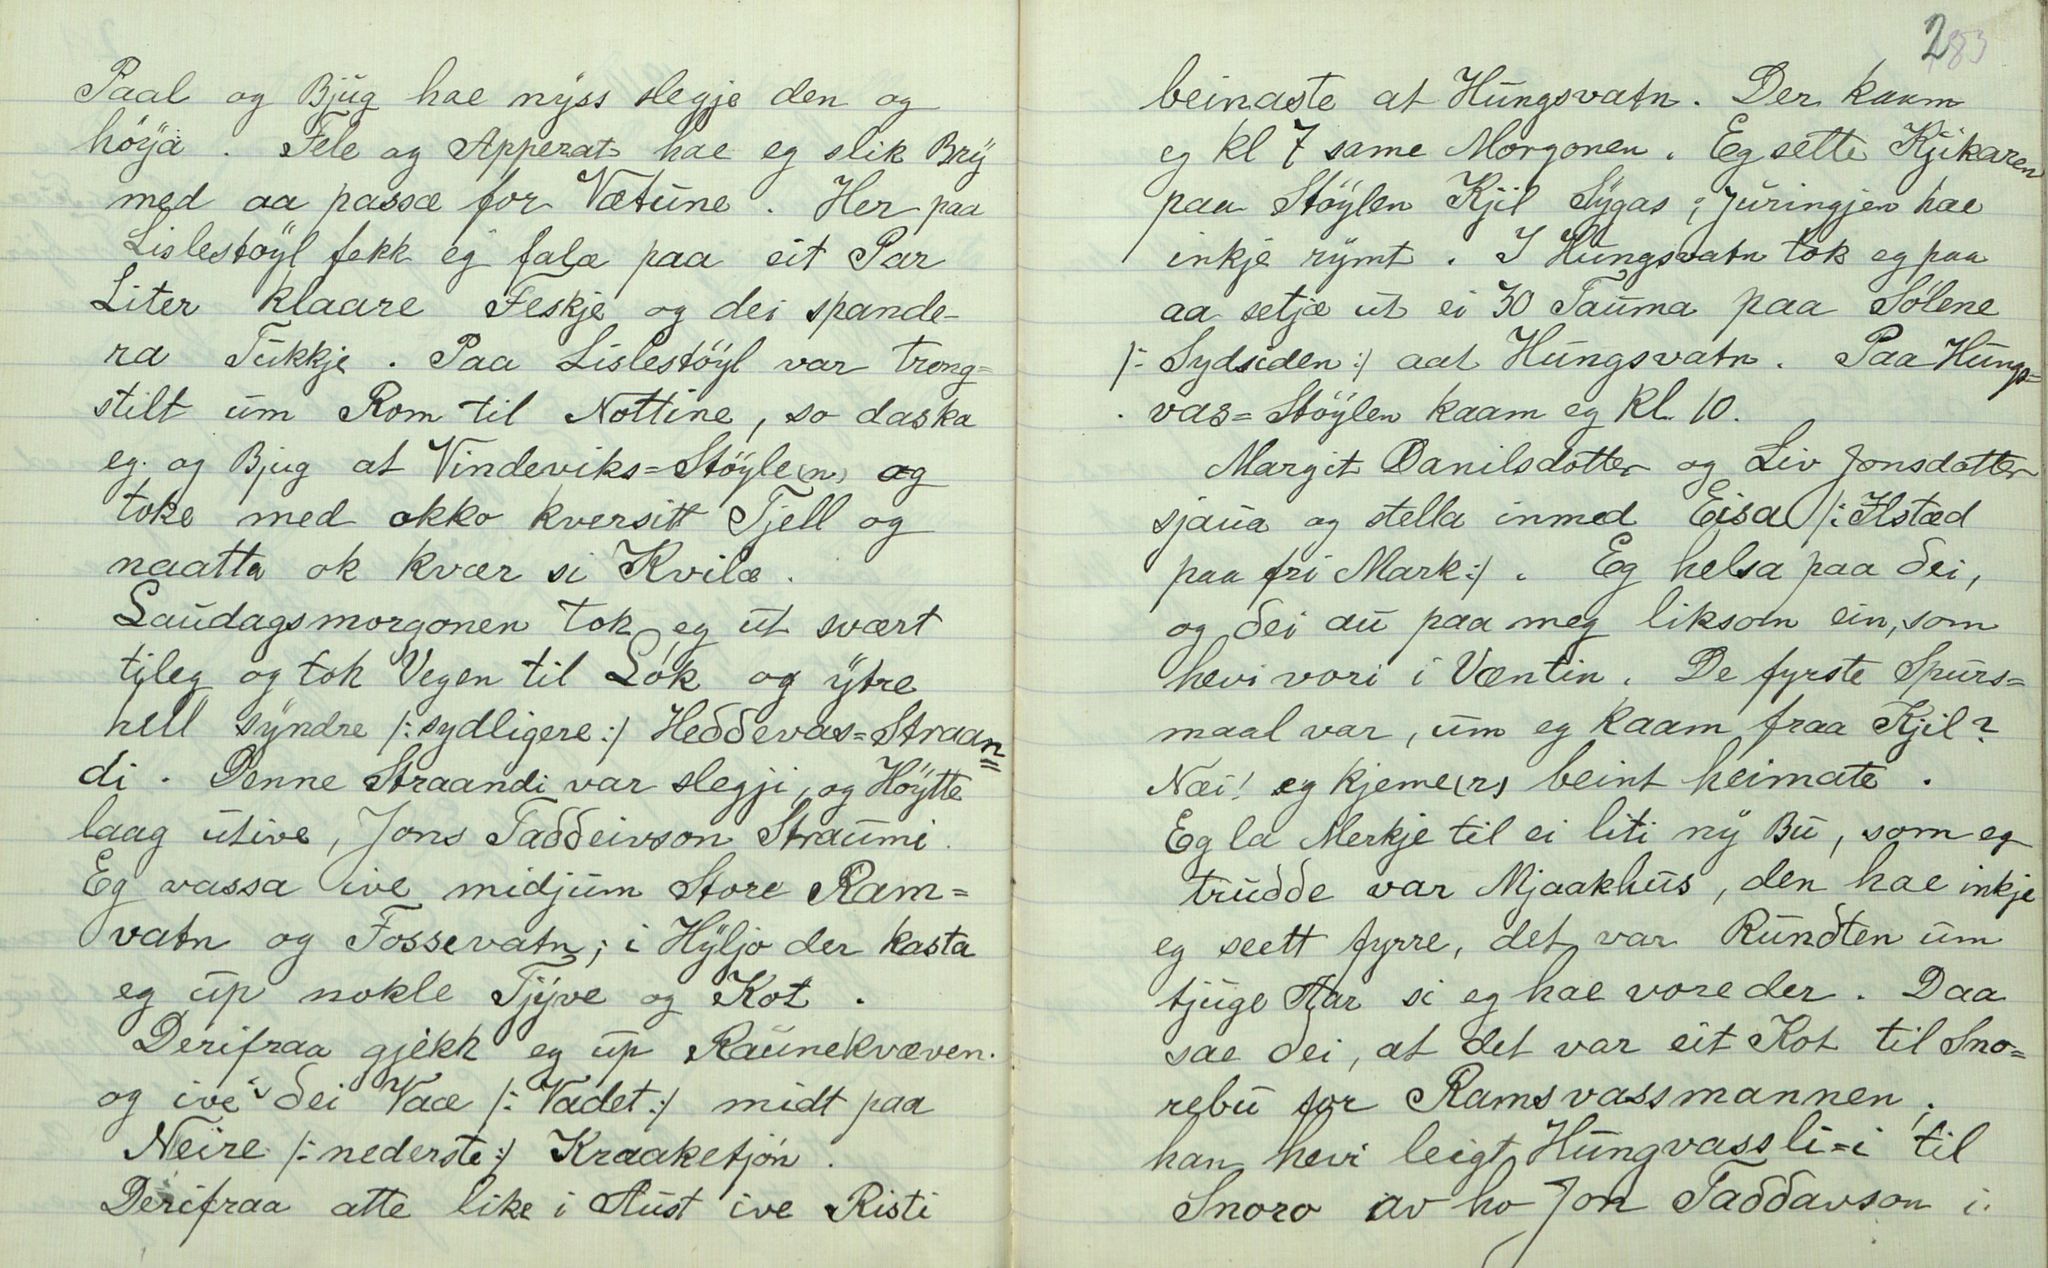 Paal og Bjug hae nyss slegje den og
höya. Fele og Apperat hae eg slik Bry
med aa passæ for Vætune. Her paa
Lislestöyl fekk eg falæ paa eit Par
Liter klaare Feskje og dei spande-
ra Tukkje. Paa Lislestöyl var trong=
stilt um Rom til Nottine, so daska
eg og Bjug at Vindeviks=Stöyle(n) og
toke med okko kversitt Fjell og
naatta ok kvær si Kvilæ.
Laudagsmorgonen tok eg ut svært
tileg og tok Vegen til Lok og ytre
hell syndre /: sydligere :/ Heððevas=Straan=
di. Denne Straandi var slegji, og Höytte
laag utive, Jons Taððeivson Straumi.
Eg vassa ive midjum Store Ram=
vatn og Fossevatn; i Hyljo der kasta
eg up nokle Tjyve og Kot.
Derifraa gjekk eg up Raunekvæven.
og ive dei Vaæ /: Vadet :/ midt paa
Neire /: nederste :/ Kraaketjön.
Derifraa atte like i Aust ive Risti
283
beinaste at Hungsvatn. Der kaam
eg kl 7 same Morgonen. Eg sette Kjikaren
paa Stöylen Kjil Sygas; Juringjen hae
inkje rymt. I Hungsvatn tok eg paa
aa setjæ ut ei 30 Tauma paa Sölene
/: Sydsiden :/ aat Hungsvatn. Paa Hungs=
vas=Stöylen kaam eg kl. 10.
Margit Danilsdotter og Liv Jonsdotter
sjaua og stella inmed Eisa /: Ilstad
paa fri Mark :/. Eg helsa paa ðei,
og ðei au paa meg liksom ein, som
hevi vori i Væntin. De fyrste Spurs=
maal var, um eg kaam fraa Kjil?
Næi! eg kjeme(r) beint heimate.
Eg la Merkje til ei liti ny Bu, som eg
trudde var Mjaakhus, den hae inkje
eg seett fyrre, det var Rundten um
tjuge Aar si eg hae vore der. Daa
sae ðei, at det var eit Kot til Sno=
rebu for Ramsvassmannen,
han hevi leigt Hungvassli=i til
Snoro av ho Jon Taððavson i